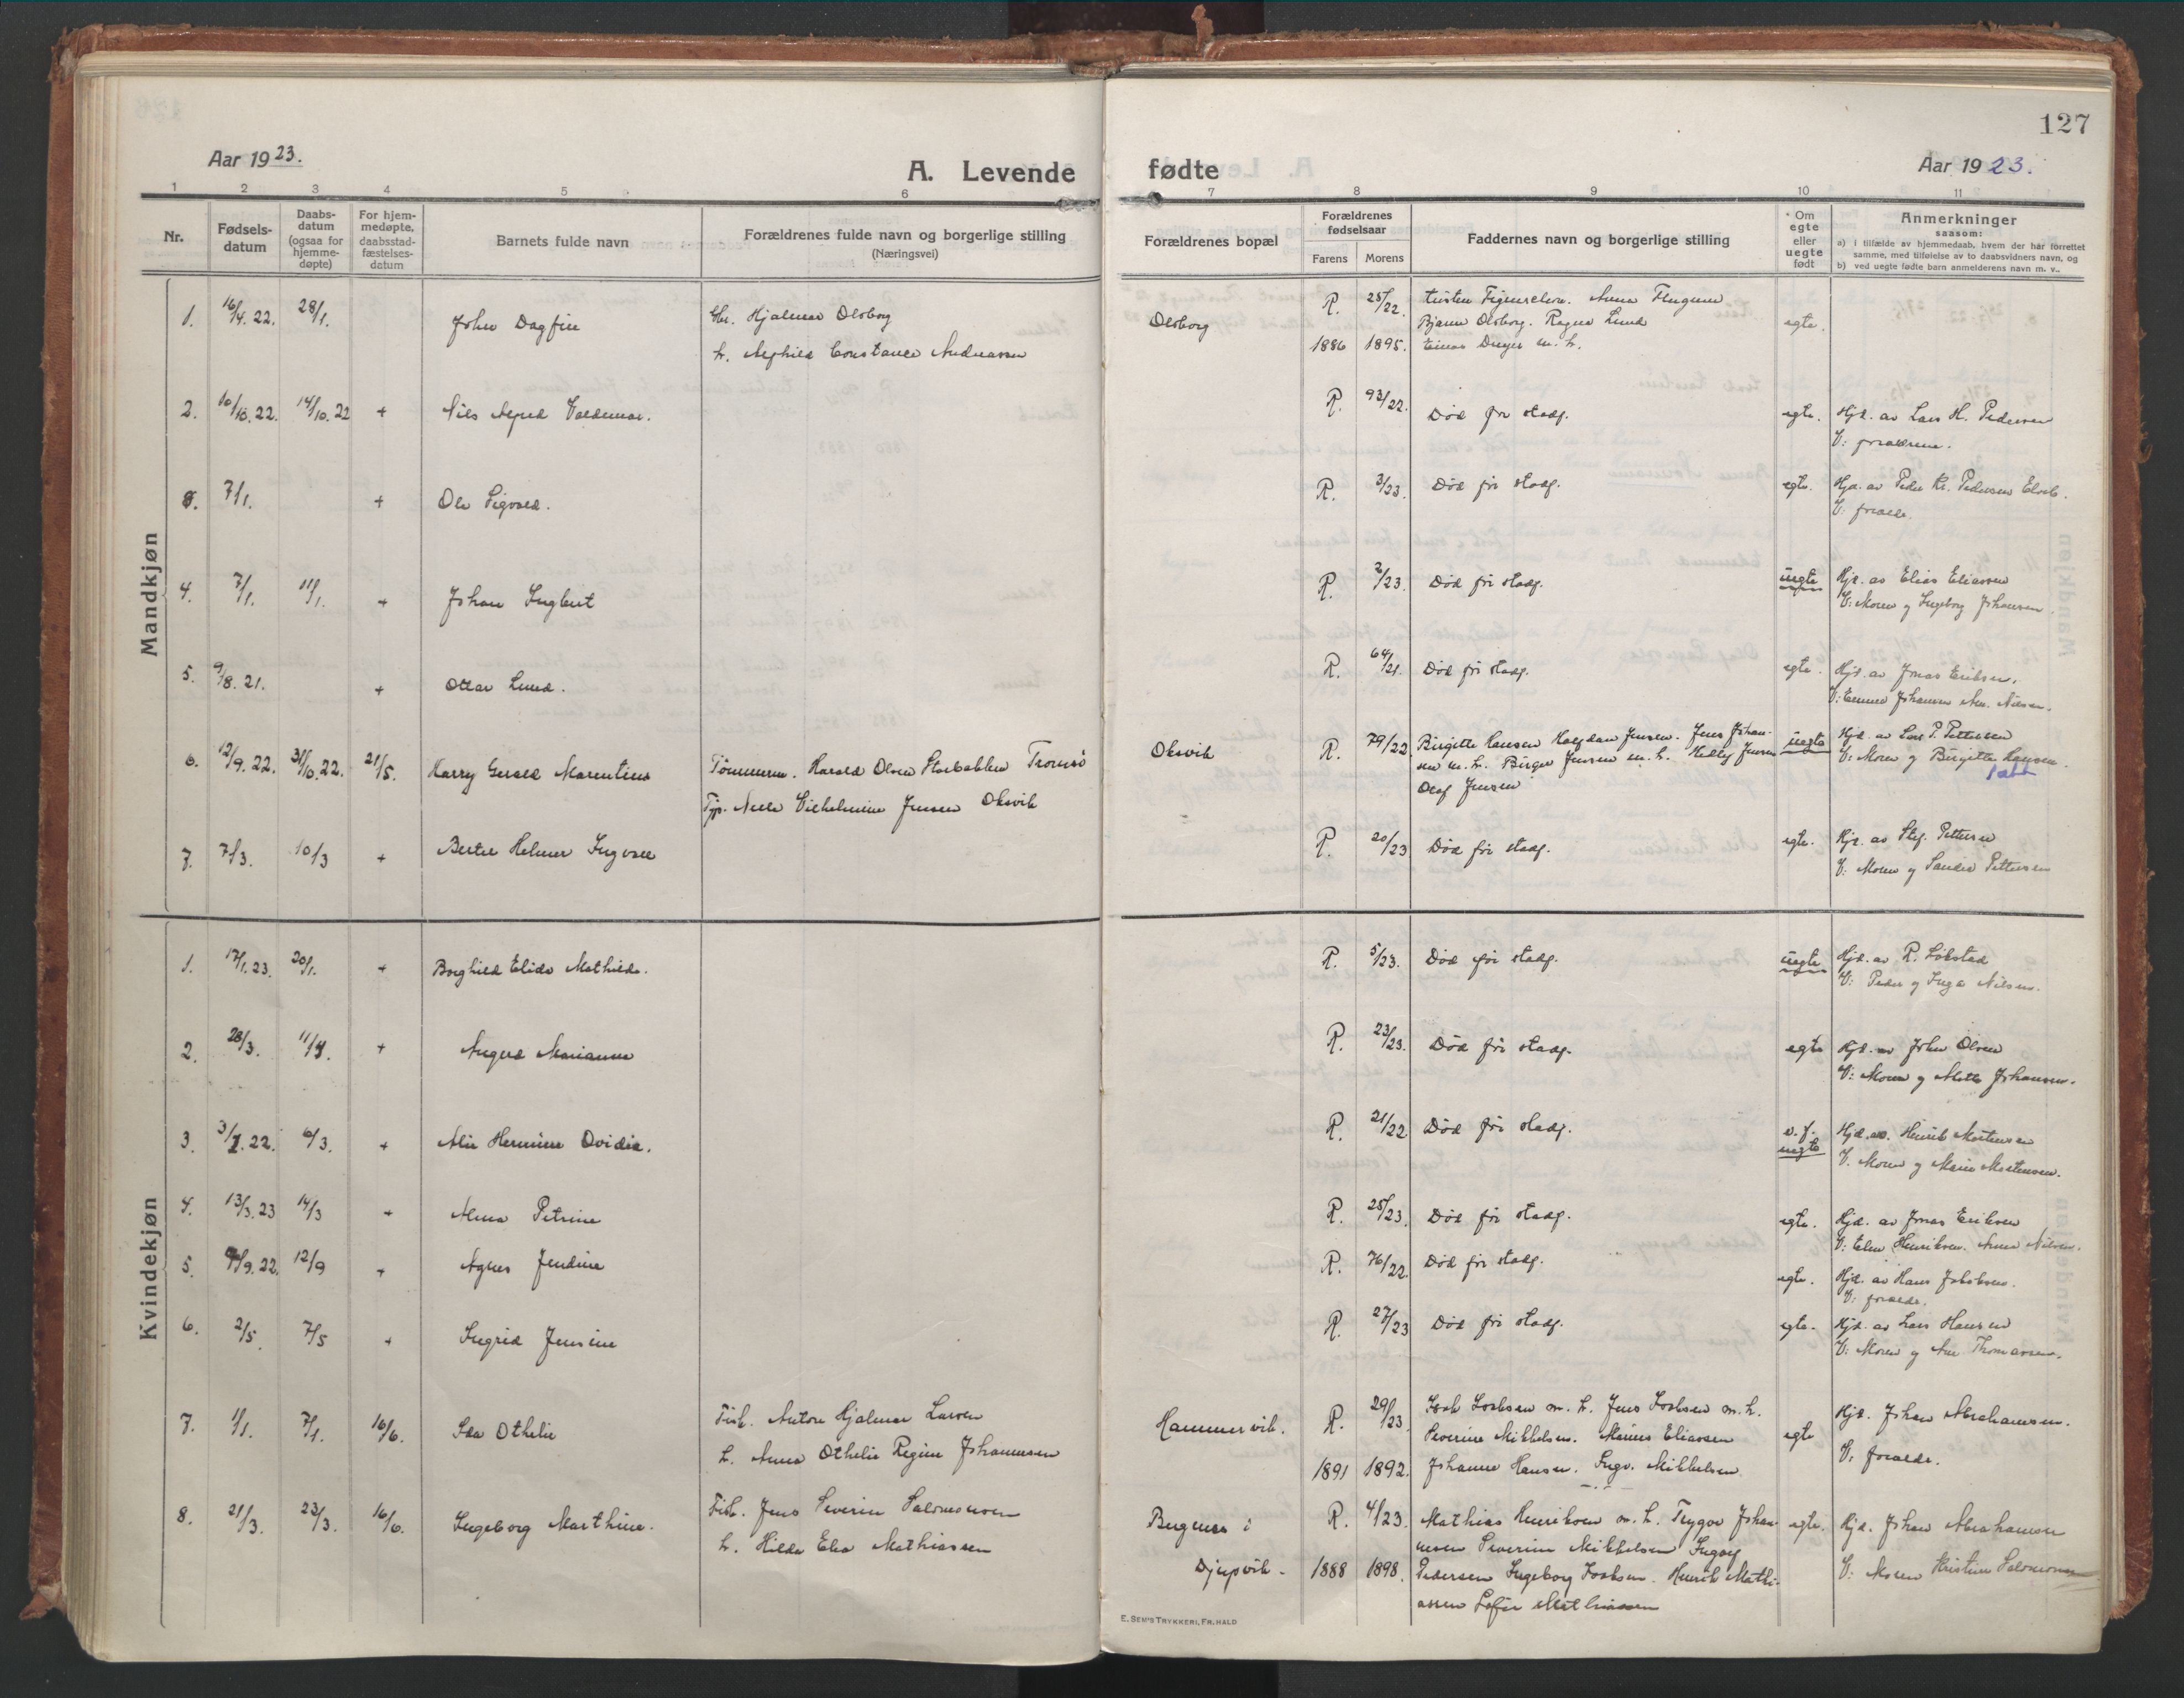 127
Aar 1923.
A. Levende fødte
Aar 1923.
1 2 3 4 5 6 7 8 9 10 11
Nr.
Fødsels-
datum
Daabs-
datum
(ogsaa for
hjemme-
døpte)
For hjem-
medøpte,
daabsstad-
fæstelses-
datum
Barnets fulde navn
Forældrenes fulde navn og borgerlige stilling
(Næringsvei)
Forældrenes bopæl
Forældrenes
fødselsaar
Farens Morens
Faddernes navn og borgerlige stilling
Om
egte
eller
uegte
født
Anmerkninger
saasom:
a) i tilfælde av hjemmedaab, hvem der har forrettet
samme, med tilføielse av to daabsvidners navn, og
b) ved uegte fødte barn anmelderens navn m. v..
Mandkjøn
1. 16/4. 22. 28/1. John Dagfin
Gbr. Hjalmar Olsborg
h. Alfhild Constance Andreassen
Olsborg
R. 25/22.
1886 1895.
Bjarne Olsborg. Ragna Lund
Einar Dreyer m. h.
egte.
2. 10/10. 22. 14/10. 22 + Nils Alfred Valdemar.
R. 93/22. Død før stadf. egte. Hjd. av Lars H. Pedersen
V: forældrene.
3. 7/1. + Ole Sigvald.
R. 3/23. Død før stadf. egte. Hjd. av Peder Kr. Pedersen
V: foræld.
4. 7/1. 11/1. + Johan Ingbert
R. 2/23. Død før stadf. uegte Hjd. av Elias Eliassen
V: Moren og Ingeborg Johansen.
5. 9/8. 21. + Ottar Lund.
R. 64/21. Død før stadf. egte. Hjd. av Jonas Eriksen.
V: Johansen Nilsen.
6. 12/9. 22. 31/10. 22. 21/5. Harry Gerald Marentius
Tømmerm. Harald Olsen Storbakken Tromsø
Tjp. Nelle Vilhelmine Jensen Oksvik
Oksvik
R. 79/22 Birgitte Hansen Halfdan Jensen. Jens Johan-
sen m. h. Birger Jensen m. h. Jensen
Olaf Jensen
uegte
Hjd. av Lars P. Pettersen
V: Moren og Birgitte Hansen.
7. 7/3. 10/3 + Bertil Helmer Ingvald
R. 20/23 Død før stadf. egte. Hjd. av Stef. Pettersen
V: Moren og Sandra Pettersen
Kvindekjøn
1. 17/1. 23. 20/1. + Borghild Elida Mathilde.
R. 5/23. Død før stadf. uegte Hjd. av R. Løkstad
V: Peder og Inga Nilsen.
2. 28/3. 11/4. + Angerd Marianne
R. 23/23. Død før stadf. egte Hjd. av Johan Olsen
V: Moren og Mette Johansen.
3. 3/7. 22. 6/3. + Alie Hermine Ovidia.
R. 21/22 Død før stadf. uegte Hjd. av. Henrik Mortensen
V. Moren og Marie Mortensen.
4. 13/3. 23 14/3 + Alma Petrine
R. 25/23. Død før stadf. egte. Hjd. av Jonas Eriksen
V: Henriksen. Anna Nilsen.
5. 9/9. 22. 12/9 + Agnes Jendine
R. 76/22. Død før stadf. egte. Hjd. av Hans Jakobsen.
V: foræld.
6. 2/5. 7/5 + Ingrid Jensine
R. 27/23 Død før stadf. egte. Hjd. av Lars Hansen
V: Moren og Ane Thomassen.
7. 1/1. 7/1. 16/6. Ida Othelie
Fisk. Anton Hjalmar Larsen
h. Anna Othelie Regine Johannesen
Hammervik.
R. 29/23.
1891 1892.
Isak Isaksen m. h. Jens Isaksen m. h.
Severine Mikkelsen. Marius Eliassen
Johanne Hansen. Ingv. Mikkelsen
egte
Hjd. Johan Abrahamsen.
V. foræld.
8. 21/3. 23/3. 16/6. Ingeborg Marthine.
Fisk. Jens Severin Salomonsen
h. Hilda Elea Mathiassen
Bugnes i
Djupvik.
R. 4/23.
1888 1898.
Mathias Henriksen m. h. Trygve Johan-
nesen Severine Mikkelsen Ingolf
Pedersen Ingeborg Isaksen. Henrik Mathi-
assen Sofie Mathiassen
egte.
Hjd. Johan Abrahamsen
V: Moren Kristine Salomonsen
E. SEM'S TRYKKERI, FR. HALD